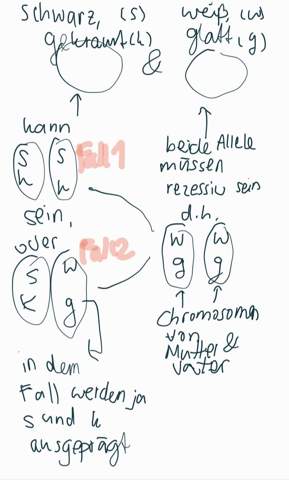 schwarz, (s)
gekraust (k)
&
weiß, (w)
glatt (g)
kann
S S
k k
Fall 1
sein,
oder
Fall 2
S W
k g
in dem
Fall werden ja
s und k
ausgeprägt
beide Allele
müssen
rezessiv sein
d.h.
W W
g g
Chromosomen
von
Mutter &
Vater